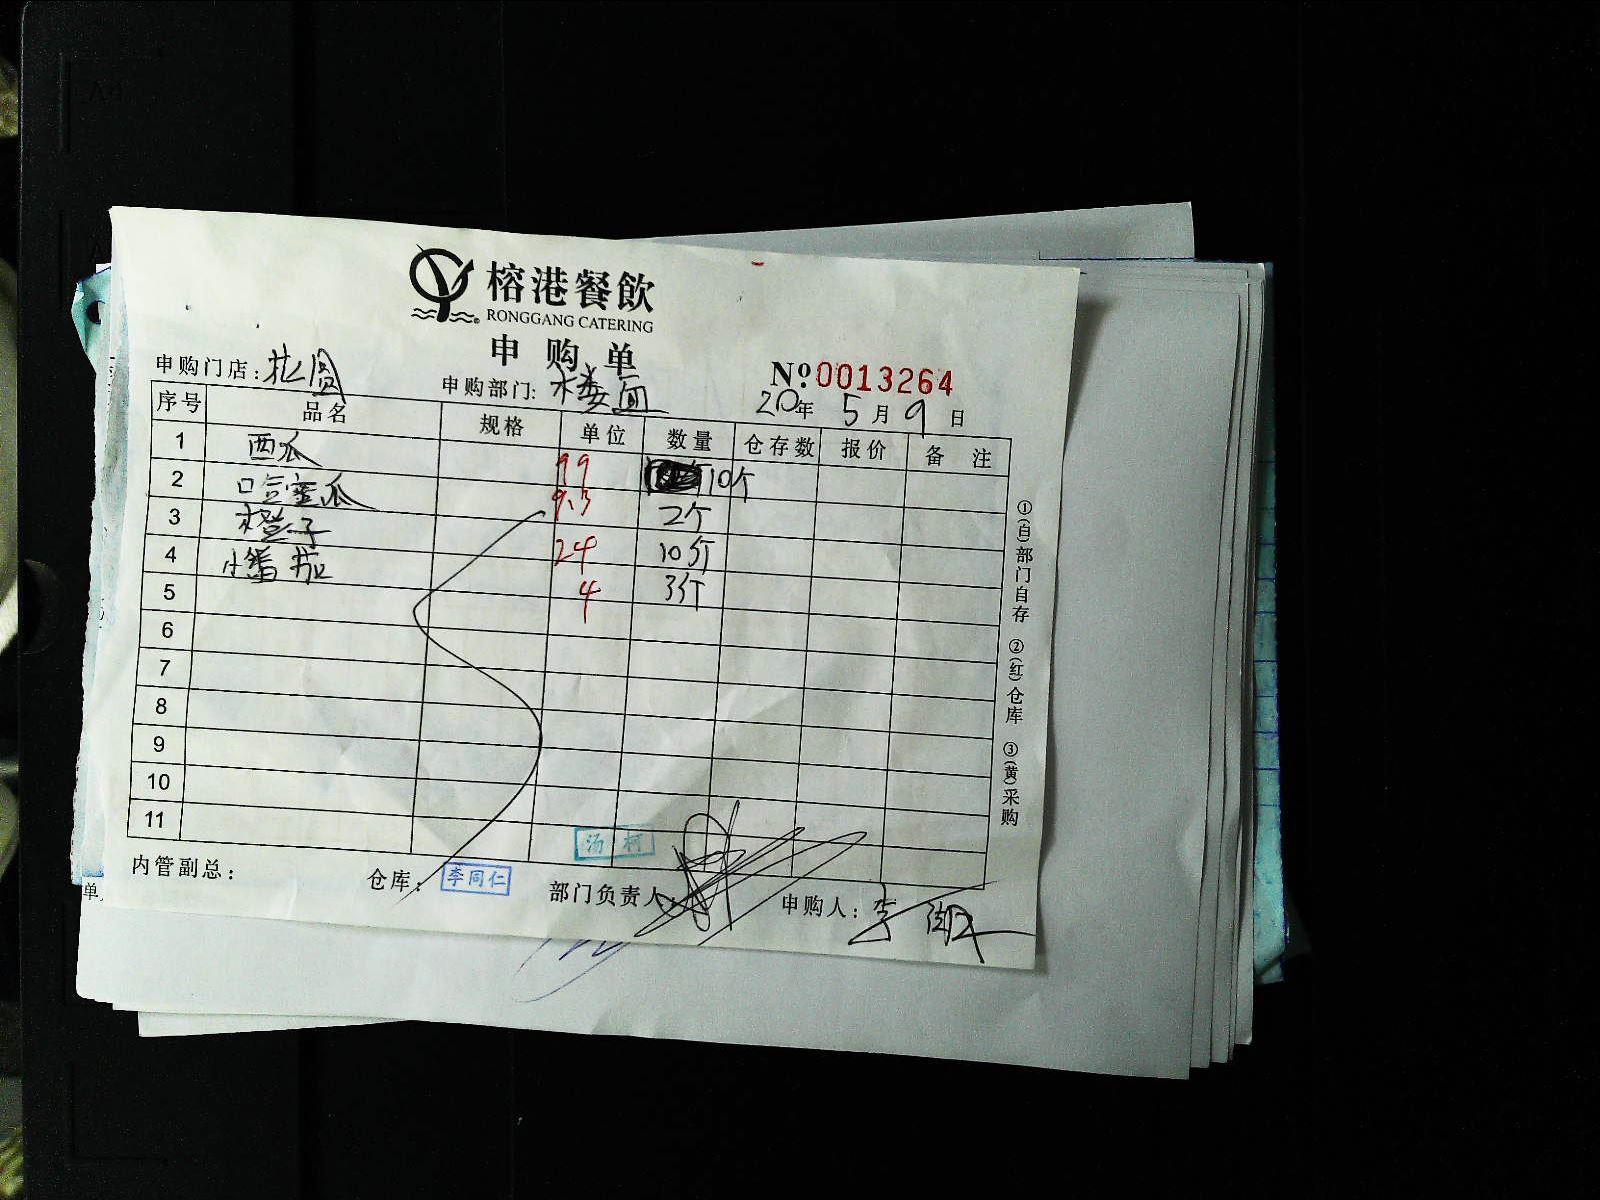 榕港餐飲
RONGGANG CATERING
申购单
申购门店: 申购部门: 楼面 № 0013264
20年 5月 9日
序号 品名 规格 单位 数量 仓存数 报价 备注
1 西瓜 99 10个
2 哈蜜瓜 9.3 2个
3 橙子 24 10斤
4 小番茄 4 3斤
5
6
7
8
9
10
11
①(白)部门自存 ②(红)仓库 ③(黄)采购
汤柯
内管副总: 仓库: 李同仁 部门负责人: 申购人: 李
单